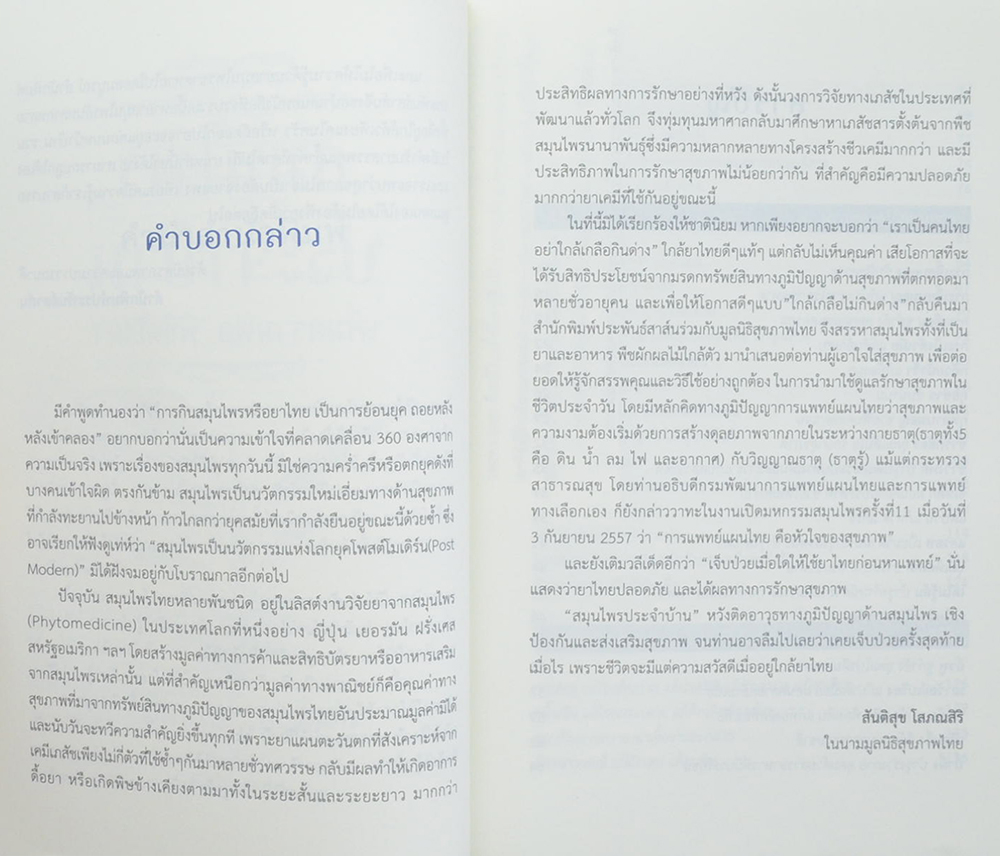 คำบอกกล่าว
มีคำพูดทำนองว่า “การกินสมุนไพรหรือยาไทย เป็นการย้อนยุค ถอยหลัง
หลังเข้าคลอง” อยากบอกว่านั่นเป็นความเข้าใจที่คลาดเคลื่อน 360 องศาจาก
ความเป็นจริง เพราะเรื่องของสมุนไพรทุกวันนี้ มิใช่ความคร่ำครึหรือตกยุคดังที่
บางคนเข้าใจผิด ตรงกันข้าม สมุนไพรเป็นนวัตกรรมใหม่เอี่ยมทางด้านสุขภาพ
ที่กำลังทะยานไปข้างหน้า ก้าวไกลกว่ายุคสมัยที่เรากำลังยืนอยู่ขณะนี้ด้วยซ้ำ ซึ่ง
อาจเรียกให้ฟังดูเท่ห์ว่า “สมุนไพรเป็นนวัตกรรมแห่งโลกยุคโพสต์โมเดิร์น(Post
Modern)” มิได้ฝังจมอยู่กับโบราณกาลอีกต่อไป
ปัจจุบัน สมุนไพรไทยหลายพันชนิด อยู่ในลิสต์งานวิจัยยาจากสมุนไพร
(Phytomedicine) ในประเทศโลกที่หนึ่งอย่าง ญี่ปุ่น เยอรมัน ฝรั่งเศส
สหรัฐอเมริกา ฯลฯ โดยสร้างมูลค่าทางการค้าและสิทธิบัตรยาหรืออาหารเสริม
จากสมุนไพรเหล่านั้น แต่ที่สำคัญเหนือกว่ามูลค่าทางพาณิชย์ก็คือคุณค่าทาง
สุขภาพที่มาจากทรัพย์สินทางภูมิปัญญาของสมุนไพรไทยอันประมาณมูลค่ามิได้
และนับวันจะทวีความสำคัญยิ่งขึ้นทุกที เพราะยาแผนตะวันตกที่สังเคราะห์จาก
เคมีเภสัชเพียงไม่กี่ตัวที่ใช้ซ้ำๆกันมาหลายชั่วทศวรรษ กลับมีผลทำให้เกิดอาการ
ดื้อยา หรือเกิดพิษข้างเคียงตามมาทั้งในระยะสั้นและระยะยาว มากกว่า
ประสิทธิผลทางการรักษาอย่างที่หวัง ดังนั้นวงการวิจัยทางเภสัชในประเทศที่
พัฒนาแล้วทั่วโลก จึงทุ่มทุนมหาศาลกลับมาศึกษาหาเภสัชสารตั้งต้นจากพืช
สมุนไพรนานาพันธุ์ซึ่งมีความหลากหลายทางโครงสร้างชีวเคมีมากกว่า และมี
ประสิทธิภาพในการรักษาสุขภาพไม่น้อยกว่ากัน ที่สำคัญคือมีความปลอดภัย
มากกว่ายาเคมีที่ใช้กันอยู่ขณะนี้
ในที่นี้มิได้เรียกร้องให้ชาตินิยม หากเพียงอยากจะบอกว่า “เราเป็นคนไทย
อย่าใกล้เกลือกินด่าง” ใกล้ยาไทยดีๆแท้ๆ แต่กลับไม่เห็นคุณค่า เสียโอกาสที่จะ
ได้รับสิทธิประโยชน์จากมรดกทรัพย์สินทางภูมิปัญญาด้านสุขภาพที่ตกทอดมา
หลายชั่วอายุคน และเพื่อให้โอกาสดีๆแบบ”ใกล้เกลือไม่กินด่าง”กลับคืนมา
สำนักพิมพ์ประพันธ์สาส์นร่วมกับมูลนิธิสุขภาพไทย จึงสรรหาสมุนไพรทั้งที่เป็น
ยาและอาหาร พืชผักผลไม้ใกล้ตัว มานำเสนอต่อท่านผู้เอาใจใส่สุขภาพ เพื่อต่อ
ยอดให้รู้จักสรรพคุณและวิธีใช้อย่างถูกต้อง ในการนำมาใช้ดูแลรักษาสุขภาพใน
ชีวิตประจำวัน โดยมีหลักคิดทางภูมิปัญญาการแพทย์แผนไทยว่าสุขภาพและ
ความงามต้องเริ่มด้วยการสร้างดุลยภาพจากภายในระหว่างกายธาตุ(ธาตุทั้ง5
คือ ดิน น้ำ ลม ไฟ และอากาศ) กับวิญญาณธาตุ (ธาตุรู้) แม้แต่กระทรวง
สาธารณสุข โดยท่านอธิบดีกรมพัฒนาการแพทย์แผนไทยและการแพทย์
ทางเลือกเอง ก็ยังกล่าววาทะในงานเปิดมหกรรมสมุนไพรครั้งที่11 เมื่อวันที่
3 กันยายน 2557 ว่า “การแพทย์แผนไทย คือหัวใจของสุขภาพ”
และยังเติมวลีเด็ดอีกว่า “เจ็บป่วยเมื่อใดให้ใช้ยาไทยก่อนหาแพทย์” นั่น
แสดงว่ายาไทยปลอดภัย และได้ผลทางการรักษาสุขภาพ
“สมุนไพรประจำบ้าน” หวังติดอาวุธทางภูมิปัญญาด้านสมุนไพร เชิง
ป้องกันและส่งเสริมสุขภาพ จนท่านอาจลืมไปเลยว่าเคยเจ็บป่วยครั้งสุดท้าย
เมื่อไร เพราะชีวิตจะมีแต่ความสวัสดีเมื่ออยู่ใกล้ยาไทย
สันติสุข โสภณสิริ
ในนามมูลนิธิสุขภาพไทย